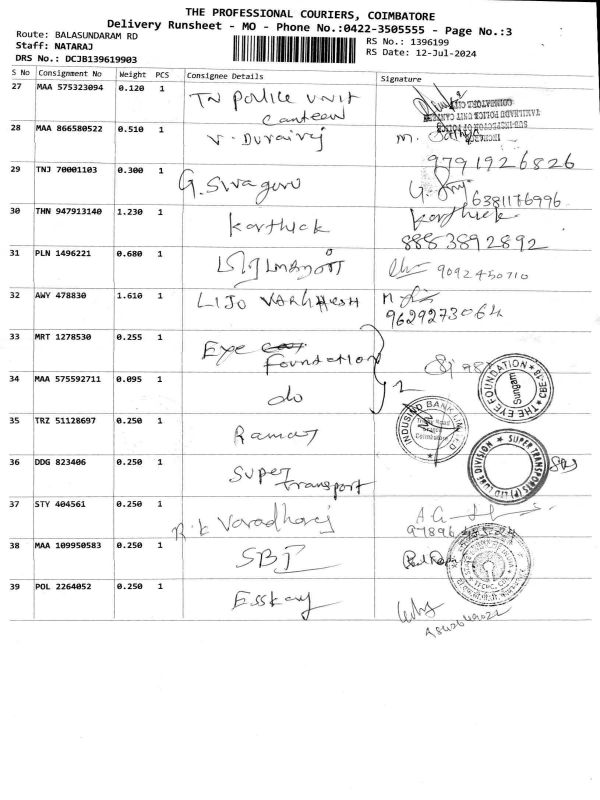 THE PROFESSIONAL COURIERS, COIMBATORE
Delivery Runsheet - MO - Phone No.:0422-3505555 - Page No.:3
Route: BALASUNDARAM RD
RS No.: 1396199
Staff: NATARAJ
RS Date: 12-Jul-2024
DRS No.: DCJB139619903
S No Consignment No Weight PCS Consignee Details Signature
27 MAA 575323094 0.120 1 TN Police Unit
Canteen
TAMILNADU POLICE UNIT CANTEEN
28 MAA 866580522 0.510 1 V. Durairaj M.
9791926826
29 TNJ 70001103 0.300 1 G. Sivaguru G.
6381176996
30 THN 947913140 1.230 1 Karthick Karthick
8883892892
31 PLN 1496221 0.680 1 9092450710
32 AWY 478830 1.610 1 LIJO VARGHESH
9629273064
33 MRT 1278530 0.255 1 Eye
foundation
THE EYE FOUNDATION
Sungam
34 MAA 575592711 0.095 1 do 2
INDUSIND BANK
Coimbatore
35 TRZ 51128697 0.250 1 Ramaj
36 DDG 823406 0.250 1 Super
transport
SUPER TRANSPORTS (P) LTD LUBE DIVISION
37 STY 404561 0.250 1 R.K Varadharaj A.G
38 MAA 109950583 0.250 1 SBI
39 POL 2264052 0.250 1 Esskay